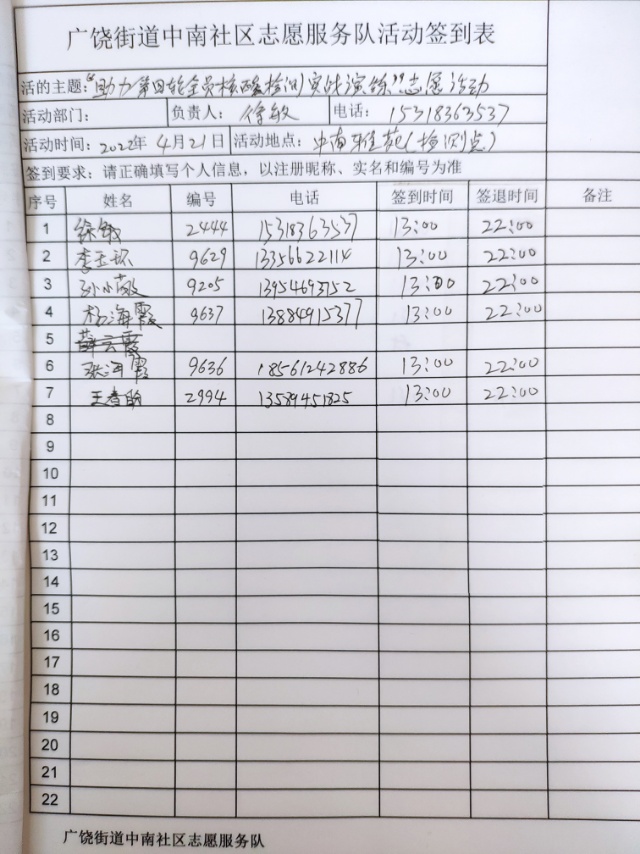 广饶街道中南社区志愿服务队活动签到表
活的主题:“助力第四轮全员核酸检测实战演练”志愿活动
活动部门: 负责人: 徐敏 电话: 15318363537
活动时间: 2022年4月21日 活动地点: 中南雅苑(检测点)
签到要求: 请正确填写个人信息，以注册昵称、实名和编号为准
序号 姓名 编号 电话 签到时间 签退时间 备注
1 徐敏 2444 15318363537 13:00 22:00
2 李玉环 9629 13356622114 13:00 22:00
3 孙小敏 9205 13954693152 13:00 22:00
4 杨海霞 9637 13884915377 13:00 22:00
5 薛云霞
6 张海霞 9636 18561242886 13:00 22:00
7 王春 2994 13589451825 13:00 22:00
8
9
10
11
12
13
14
15
16
17
18
19
20
21
22
广饶街道中南社区志愿服务队